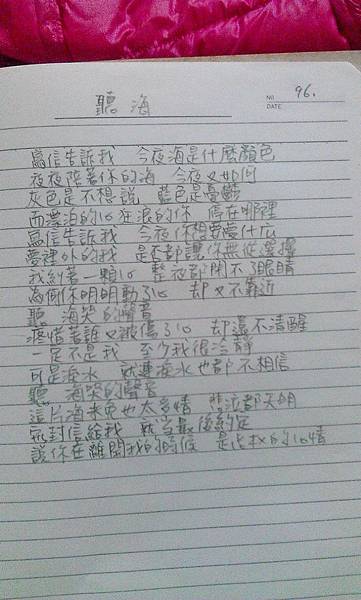 聽海
NO 96.
DATE
寫信告訴我 今夜海是什麼顏色
夜夜陪著你的海 今夜又如何
灰色是不想說 藍色是憂鬱
而漂泊的心狂浪的你 停在哪裡
寫信告訴我 今夜你想要夢什広
夢裡外的我 是否都讓你無從選擇
我糾著一顆心 整夜都閉不了眼睛
為何你明明動了心 卻又不靠近
聽 海哭的聲音
嘆惜著誰又被傷了心 卻還不清醒
一定不是我 至少我很冷靜
可是淚水 就連淚水也都不相信
聽 海哭的聲音
這片海未免也太多情 悲泣都天明
寫封信給我 就當最後約定
說你在離開我的時候 是
的心情